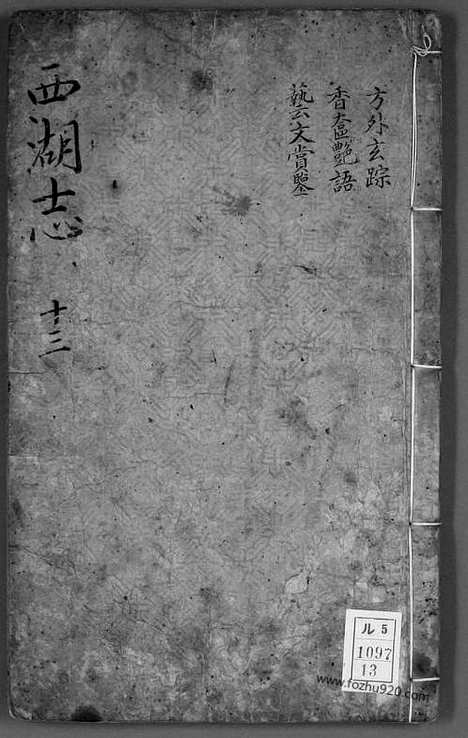 方外玄踪
香奩艷語
藝文賞鑒
西湖志
十三
ル 5
1097
13
www.fozhu920.com